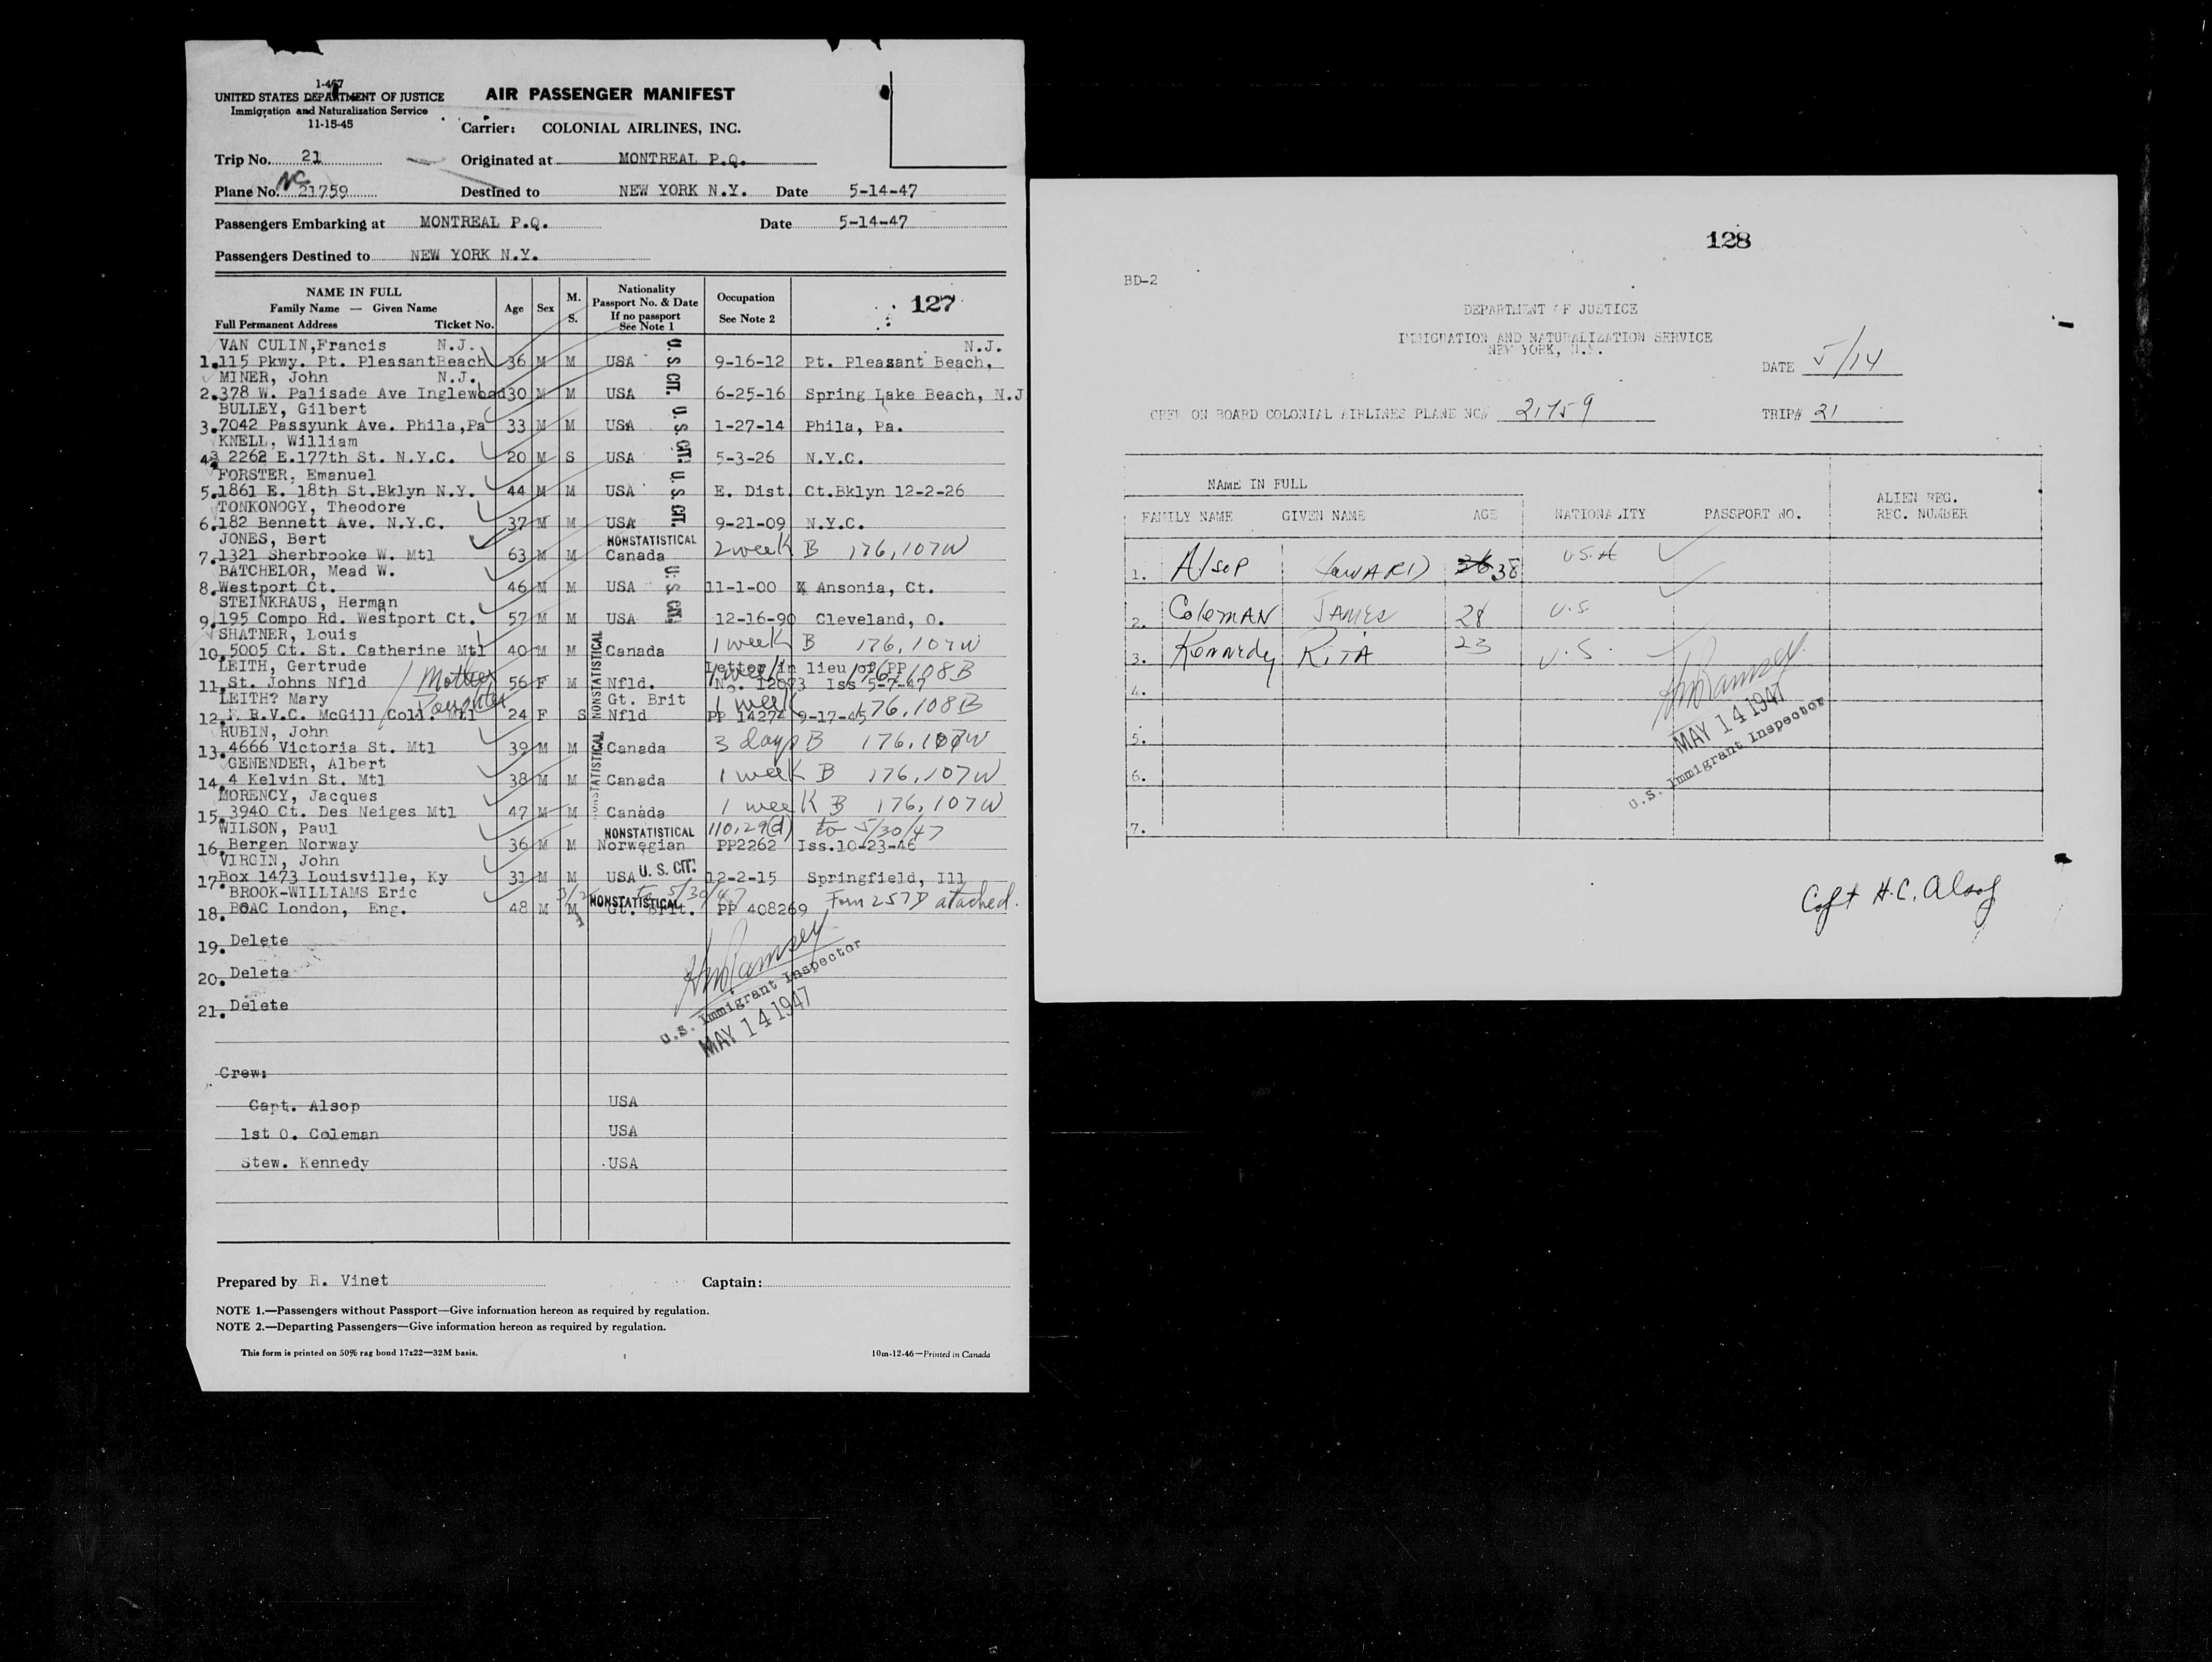 1-467
UNITED STATES DEPARTMENT OF JUSTICE
Immigration and Naturalization Service
11-15-45
AIR PASSENGER MANIFEST
Carrier: COLONIAL AIRLINES, INC.
Trip No. 21 Originated at MONTREAL P.Q.
NC
Plane No. 21759 Destined to NEW YORK N.Y. Date 5-14-47
Passengers Embarking at MONTREAL P.Q. Date 5-14-47
Passengers Destined to NEW YORK N.Y.
NAME IN FULL
Family Name — Given Name
Full Permanent Address Ticket No.
Age Sex M. S.
Nationality
Passport No. & Date
If no passport
See Note 1
Occupation
See Note 2
127
VAN CULIN,Francis N.J. N.J.
1. 115 Pkwy. Pt. PleasantBeach 36 M M USA U.S. CIT. 9-16-12 Pt. Pleasant Beach,
MINER, John N.J.
2. 378 W. Palisade Ave Inglewood 30 M M USA 6-25-16 Spring Lake Beach, N.J
BULLEY, Gilbert
3. 7042 Passyunk Ave. Phila,Pa 33 M M USA U.S. CIT. 1-27-14 Phila, Pa.
KNELL. William
4. 2262 E.177th St. N.Y.C. 20 M S USA 5-3-26 N.Y.C.
FORSTER, Emanuel
5. 1861 E. 18th St.Bklyn N.Y. 44 M M USA U.S. CIT. E. Dist. Ct.Bklyn 12-2-26
TONKONOGY, Theodore
6. 182 Bennett Ave. N.Y.C. 37 M M USA 9-21-09 N.Y.C.
JONES, Bert NONSTATISTICAL
7. 1321 Sherbrooke W. Mtl 63 M M Canada 2 week B 176,107W
BATCHELOR, Mead W.
8. Westport Ct. 46 M M USA U.S. CIT. 11-1-00 Ansonia, Ct.
STEINKRAUS, Herman
9. 195 Compo Rd. Westport Ct. 57 M M USA 12-16-90 Cleveland, O.
SHATNER, Louis
10. 5005 Ct. St. Catherine Mtl 40 M M Canada 1 week B 176,107W
LEITH, Gertrude Mother NONSTATISTICAL Letter in lieu of PP
11. St. Johns Nfld 56 F M Nfld. No. 12093 Iss 5-7-47 1 week 176,108B
LEITH? Mary Daughter Gt. Brit 1 week 176,108B
12. R.V.C. McGill Coll. Mtl 24 F S Nfld PP 14274 9-17-45
RUBIN, John
13. 4666 Victoria St. Mtl 39 M M Canada 3 days B 176,107W
GENENDER, Albert NONSTATISTICAL
14. 4 Kelvin St. Mtl 38 M M Canada 1 week B 176,107W
MORENCY, Jacques
15. 3940 Ct. Des Neiges Mtl 47 M M Canada 1 week B 176,107W
WILSON, Paul NONSTATISTICAL 110.29(d) to 5/30/47
16. Bergen Norway 36 M M Norwegian PP2262 Iss.10-23-46
VIRGIN, John
17. Box 1473 Louisville, Ky 31 M M USA U.S. CIT. 12-2-15 Springfield, Ill
BROOK-WILLIAMS Eric 3/2 to 5/30/47
18. BOAC London, Eng. 48 M M NONSTATISTICAL Gt. Brit. PP 408269 Form 257D attached.
19. Delete
20. Delete
21. Delete
HMRamsey
U.S. Immigrant Inspector
MAY 14 1947
Crew:
Capt. Alsop USA
1st O. Coleman USA
Stew. Kennedy USA
Prepared by R. Vinet Captain:
NOTE 1.—Passengers without Passport—Give information hereon as required by regulation.
NOTE 2.—Departing Passengers—Give information hereon as required by regulation.
This form is printed on 50% rag bond 17x22—32M basis. 10m-12-46—Printed in Canada
128
BD-2
DEPARTMENT OF JUSTICE
IMMIGRATION AND NATURALIZATION SERVICE
NEW YORK, N.Y.
DATE 5/14
CREW ON BOARD COLONIAL AIRLINES PLANE NC# 21759 TRIP# 21
NAME IN FULL
FAMILY NAME GIVEN NAME AGE NATIONALITY PASSPORT NO. ALIEN REG. REC. NUMBER
1. Alsop Howard 36 38 U.S.A
2. Coleman JAMES 28 U.S
3. Kennedy RITA 23 U.S.
4.
5.
6.
7.
HMRamsey
MAY 14 1947
U.S. Immigrant Inspector
Capt H.C. Alsop